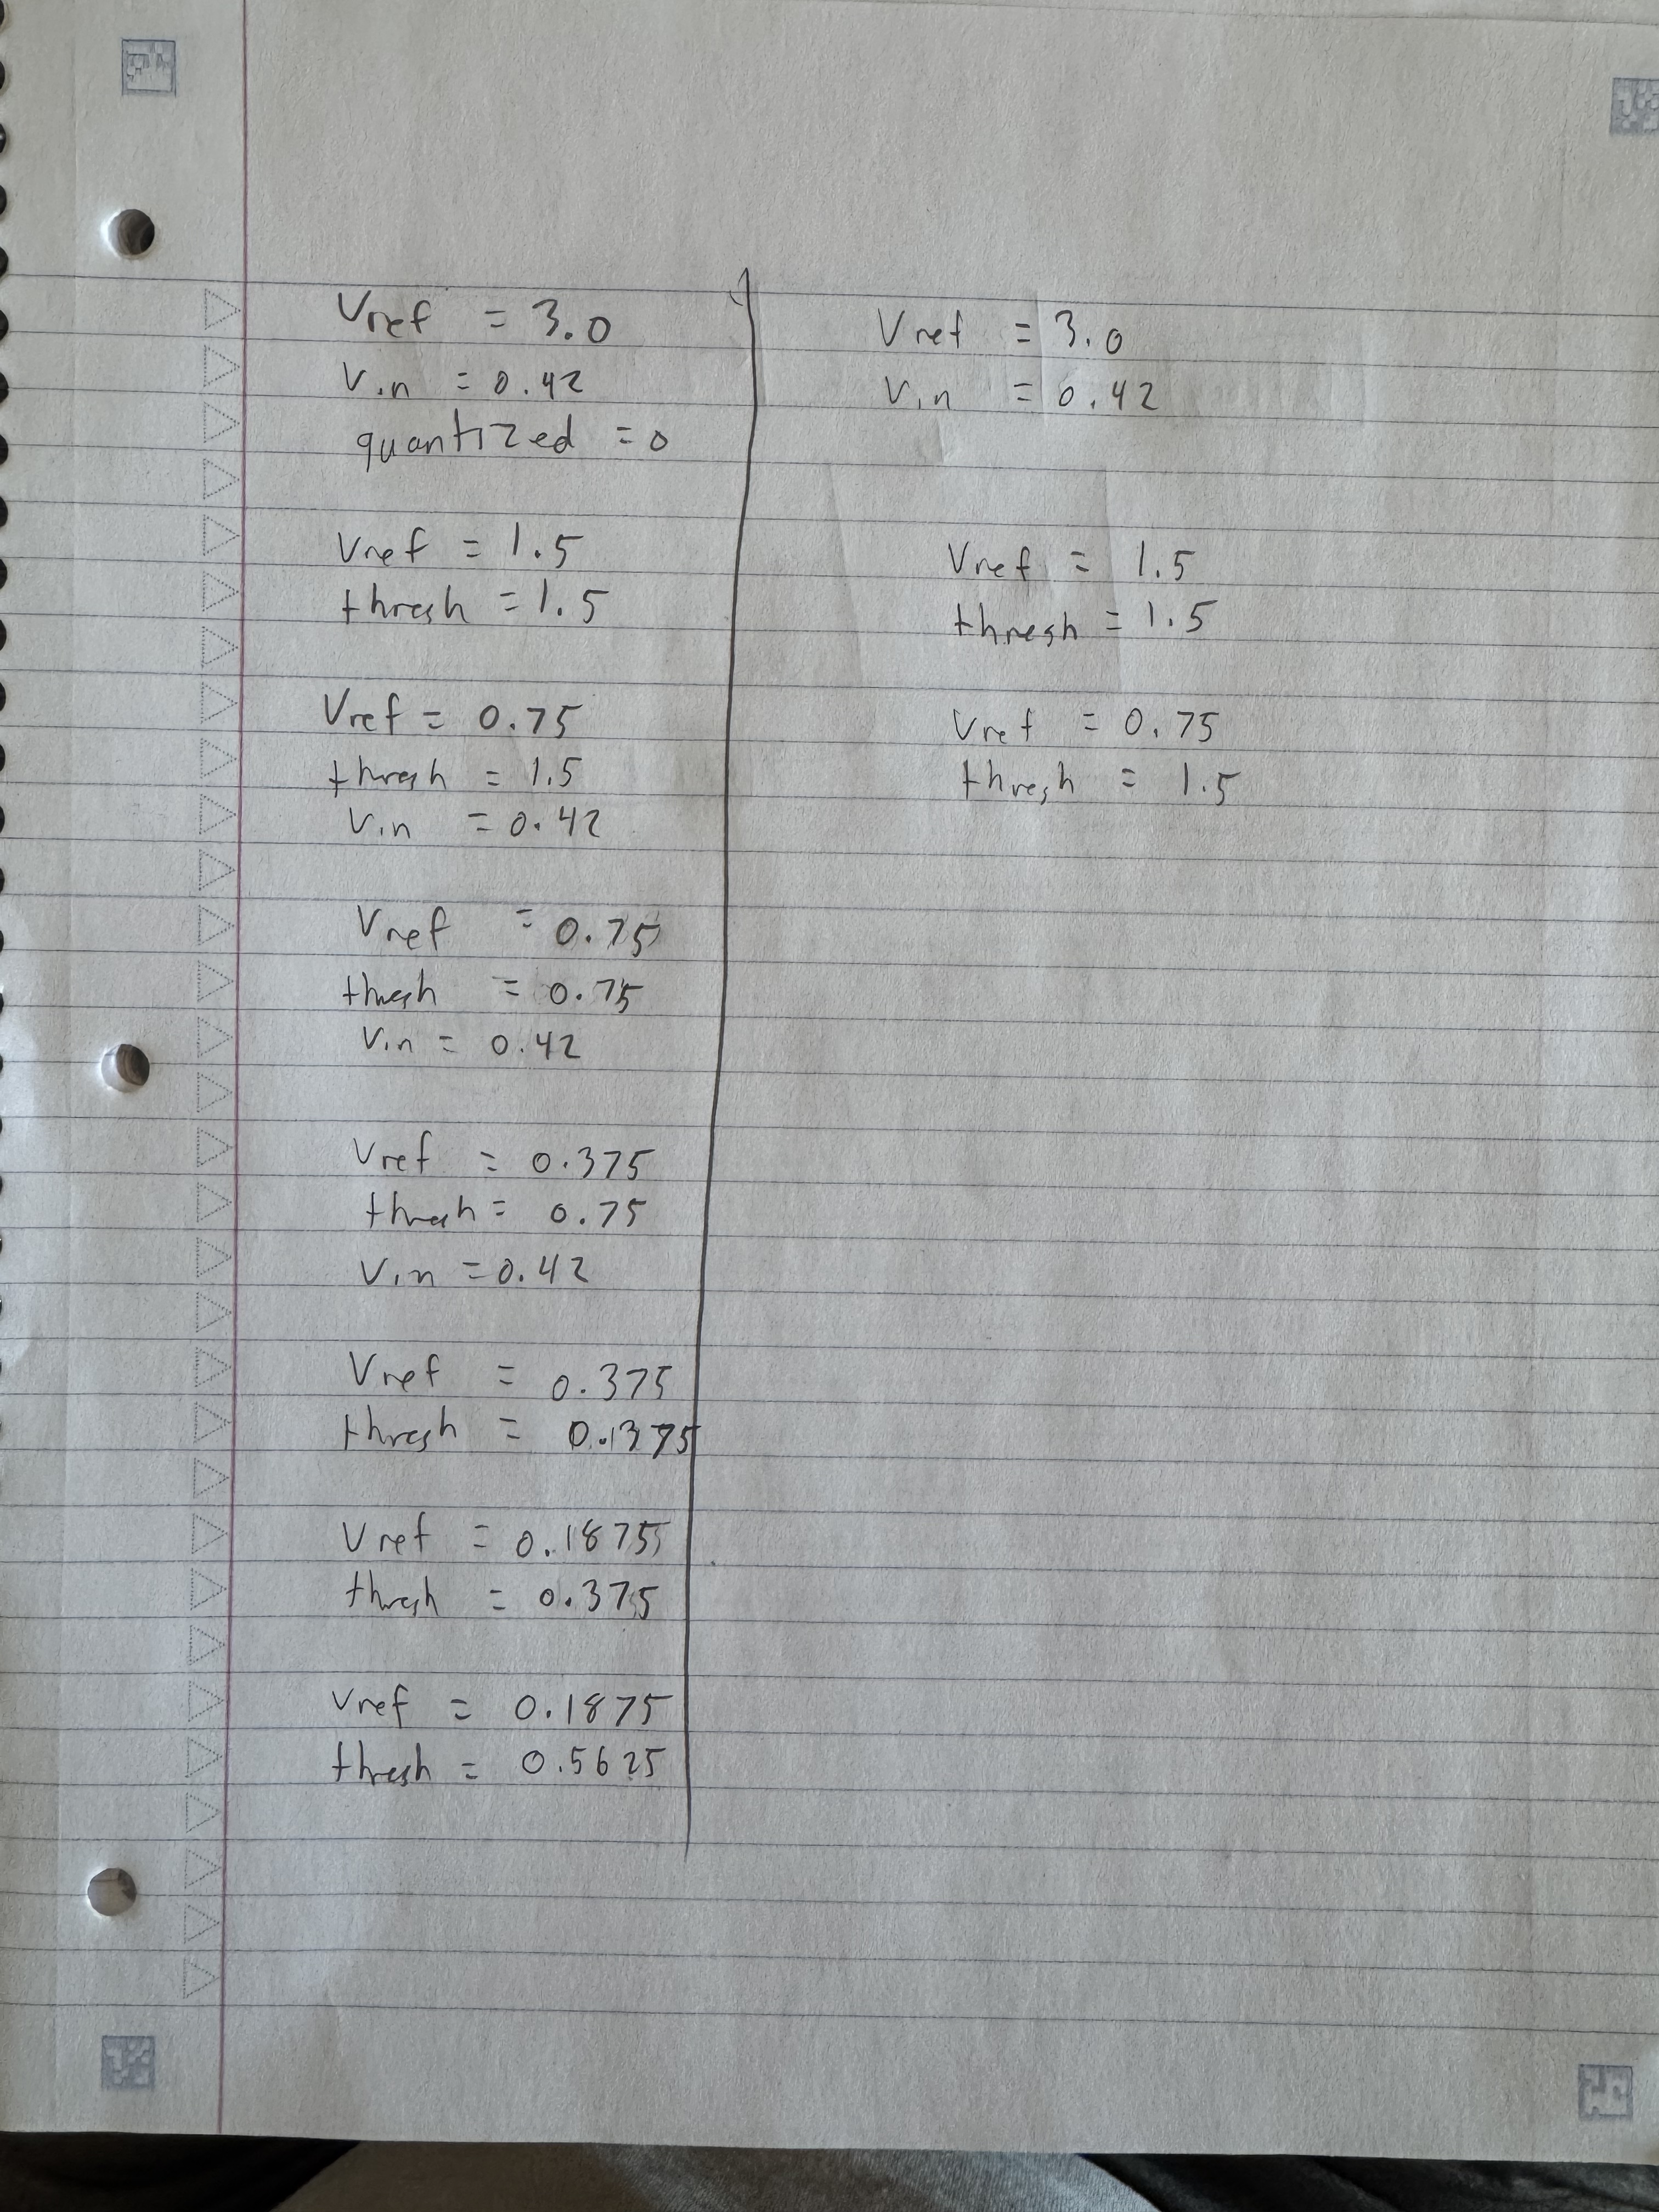 Vref = 3.0
Vin = 0.42
quantized = 0
Vref = 1.5
thresh = 1.5
Vref = 0.75
thresh = 1.5
Vin = 0.42
Vref = 0.75
thresh = 0.75
Vin = 0.42
Vref = 0.375
thresh = 0.75
Vin = 0.42
Vref = 0.375
thresh = 0.1375
Vref = 0.1875
thresh = 0.375
Vref = 0.1875
thresh = 0.5625
Vref = 3.0
Vin = 0.42
Vref = 1.5
thresh = 1.5
Vref = 0.75
thresh = 1.5